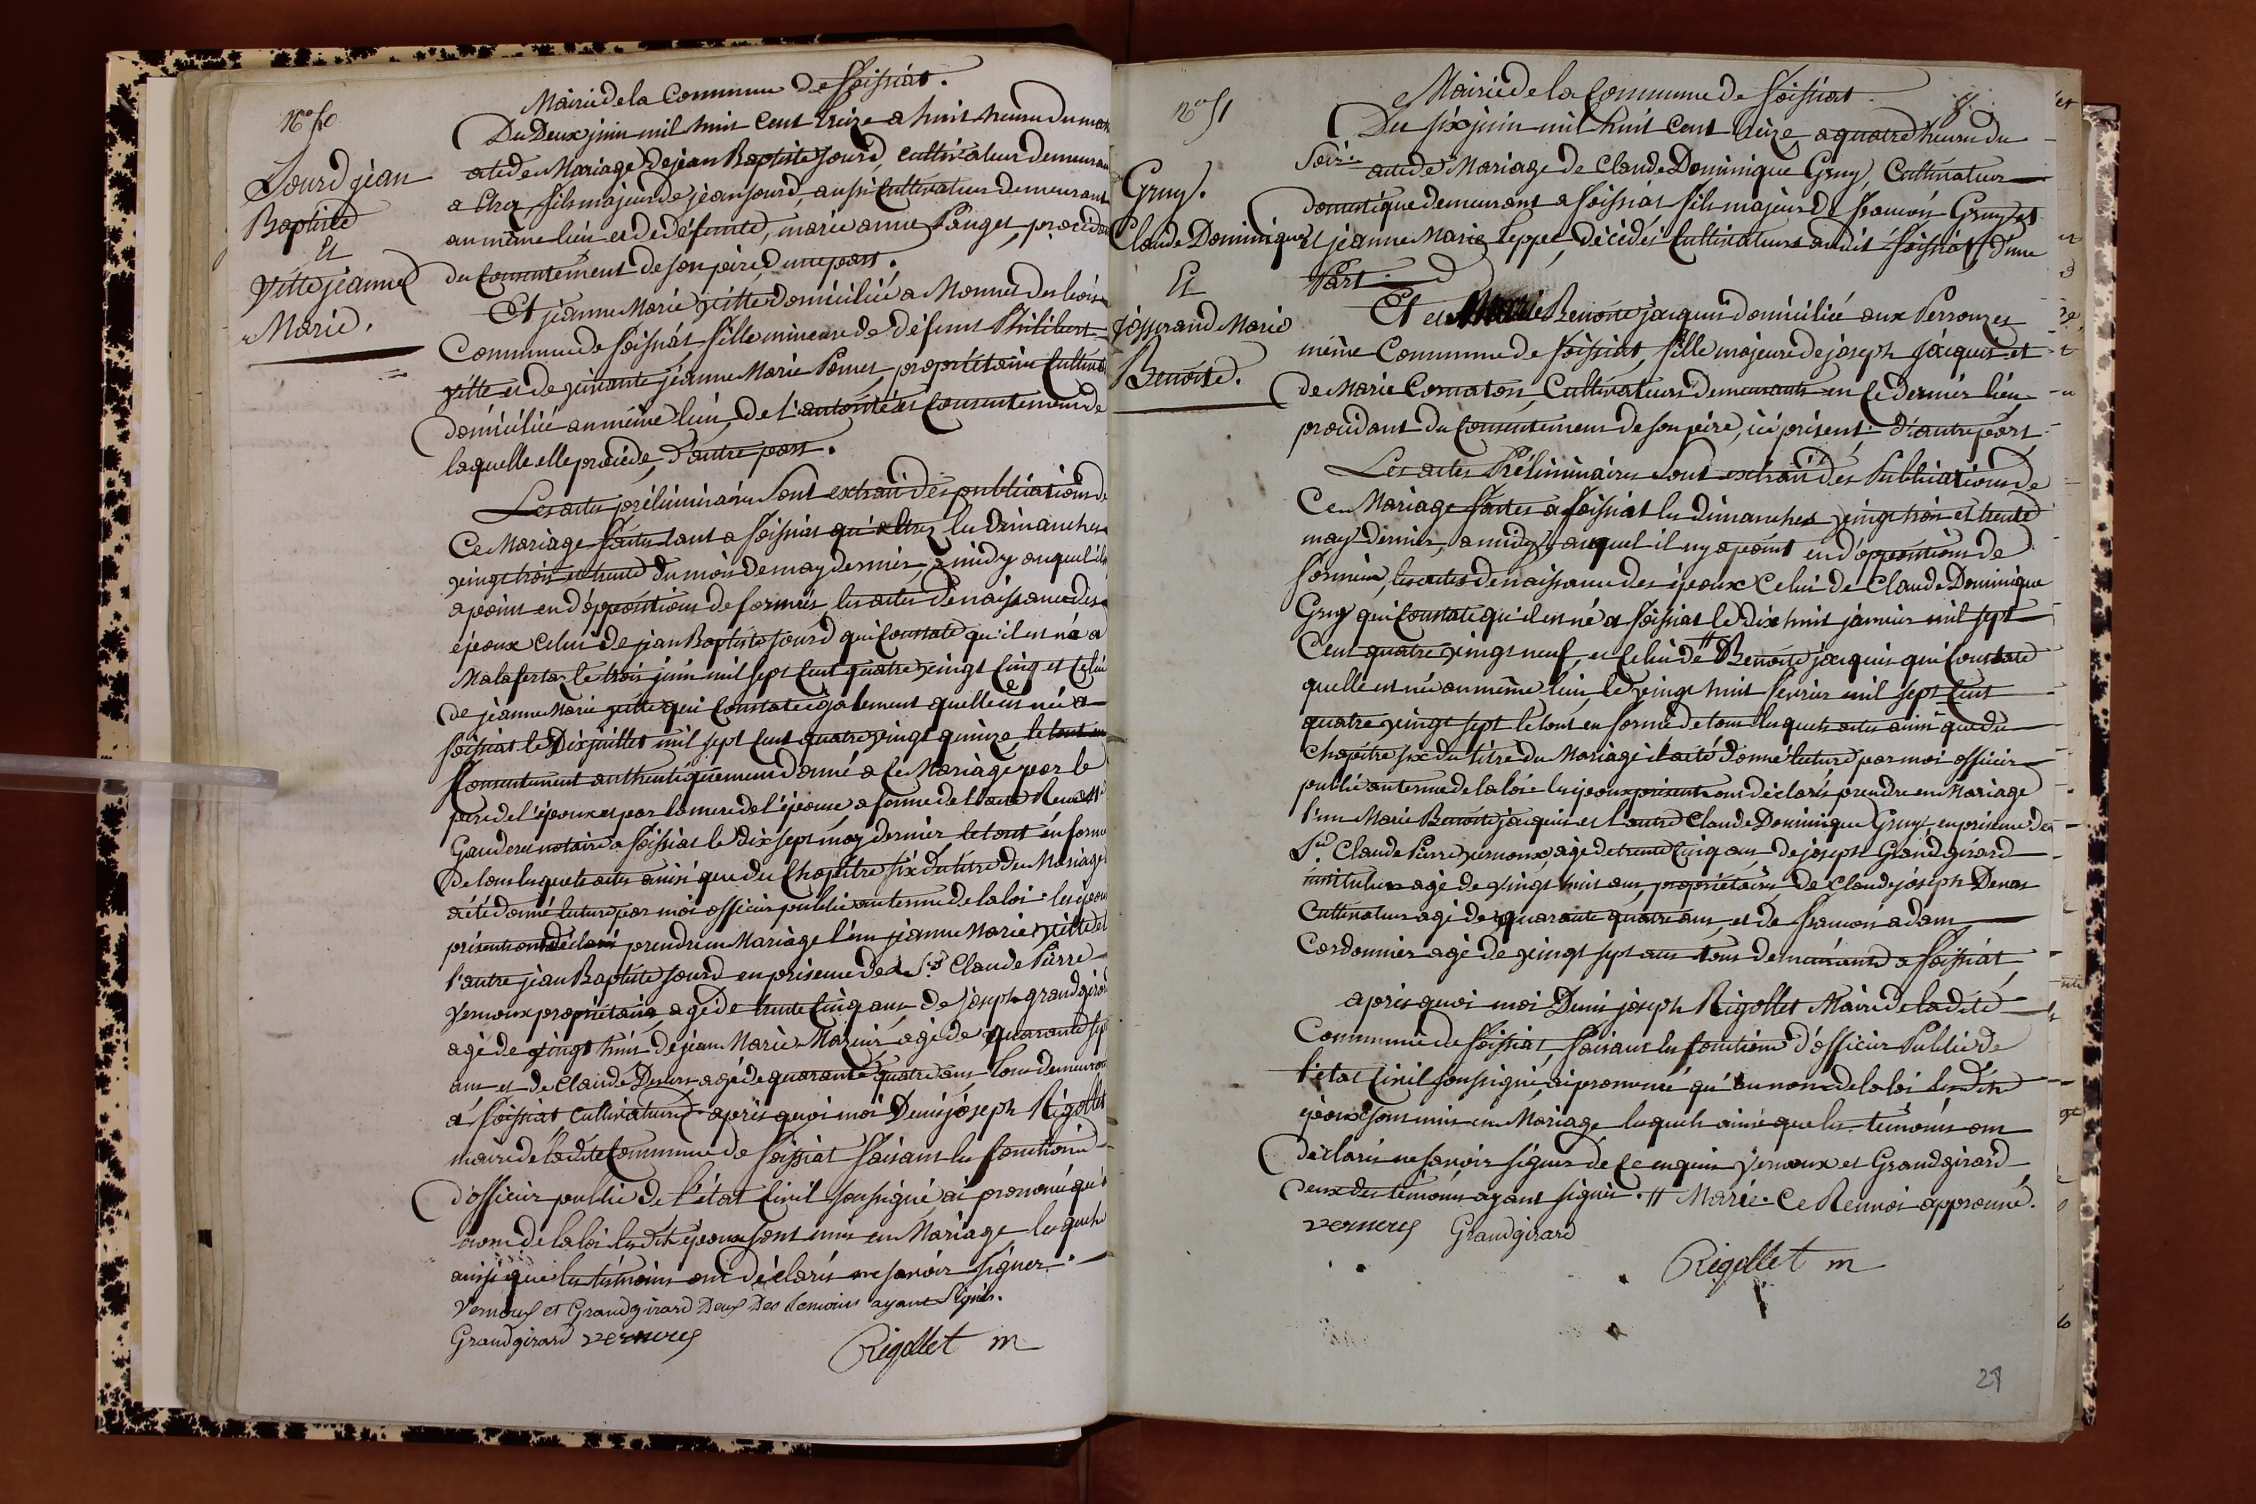 N.o 50
Sourd jean
Baptiste
Et
Vitte jeanne
Marie.
Mairie de la Commune de Foissiat.
Du Deux juin mil huit Cent treize a huit heures du matin
acte de Mariage de jean Baptiste Sourd, Cultivateur demeurant
a Etrez, fils majeur de jean Sourd, aussi Cultivateur demeurant
au même lieu et de défunte, marie anne Panget, procédant
du Consentement de son père d'une part.
Et jeanne Marie Vitte domiciliée a Monnet des bois
Commune de foissiat fille mineure de défunt Philibert
Vitte et de vivante jeanne Marie Pomet, propriétaire Cultivat
domiciliée au même lieu, de l'autorité et Consentement de
laquelle elle procède, d'autre part.
Les actes préliminaires sont extrait des publications de
Ce Mariage faites tant a foissiat qu'a Etrez les dimanches
vingt trois et trente du mois de may dernier, a midy auquel il n'y
a point eu d'oppositions de formées, les actes de naissance des
époux Celui de jean Baptiste Sourd qui Constate qu'il est né a
Malafretaz le trois juin mil sept Cent quatre vingt Cinq et Celui
de jeanne Marie Vitte qui Constate également quelle est née a
foissiat le Dix juillet mil sept Cent quatre vingt quinze le tout en
Consentement authentiquement donné a Ce Mariage par le
père de l'époux et par la mere de l'épouse a forme de l'acte Reçu Me
Gauderet notaire a foissiat le dix sept may dernier le tout en forme
de tous lesquels actes ainsi que du Chapitre six du titre du Mariage
a été donné lecture par moi officier public au terme de la loi. les époux
présents ont déclaré prendre en Mariage l'un jeanne Marie Vitte et
l'autre jean Baptiste Sourd en présence de Sr. Claude Pierre
Vernoux propriétaire, agé de trente Cinq ans, de joseph grandgirard
agé de vingt huit de jean Marie Mazuir agé de quarante sept
ans et de Claude Denas agé de quarante quatre ans tous demeurant
a foissiat Cultivateurs après quoi moi Denis joseph Rigollet
maire de ladite Commune de foissiat faisant les fonctions
d'officier public de l'état Civil soussigné ai prononcé qu'au
nom de la loi lesdits époux sont unis en Mariage lesquels
ainsi que les témoins ont déclarés ne savoir signer.
Vernoux et Grandgirard Deux Des temoins ayant Signés.
Grandgirard vernoux
Rigollet m
N.o 51
Gruy.
Claude Dominique
Et
jossserand Marie
Benoite.
Mairie de la Commune de Foissiat.
Du six juin mil huit cent treize a quatre heures du
Soir.
acte de Mariage de Claude Dominique Gruy, Cultivateur
domestique demeurant a foissiat fils majeur de françois Gruy et
Et jeanne Marie Teppe, décédés Cultivateurs audit foissiat d'une
Part.
Et de Marie Benoite jacquis domiciliée aux Perrouzes
même Commune de foissiat, fille majeure de joseph jacquis et
de Marie Comaton, Cultivateurs demeurants en Ce dernier lieu
procédant du Consentement de son père, ici présent. d'autre part,
Les actes Préliminaires sont extrait des Publications de
Ce Mariage faites a foissiat les dimanches vingt trois et trente
may dernier, a midy, auquel il ny a point eu d'oppositions de
formées, les actes de naissance des époux Celui de Claude Dominique
Gruy qui Constate qu'il est né a foissiat le dix huit janvier mil sept
Cent quatre vingt neuf, et Celui de # Benoite jacquis qui Constate
quelle est née au même lieu, le vingt huit février mil sept Cent
quatre vingt sept le tout en forme de tous lesquels actes ainsi que du
Chapitre six du titre du Mariage il a été donné lecture par moi officier
public au terme de la loi. les époux présents ont déclarés prendre en Mariage
l'un Marie Benoite jacquis et l'autre Claude Dominique Gruy, en présence des
Srs. Claude Pierre vernoux, agé de trente Cinq ans de joseph Grandgirard
instituteur agé de vingt huit ans, propriétaires de Claude joseph Denas
Cultivateur agé de quarante quatre ans, et de françois adam
Cordonnier agé de vingt sept ans tous demeurants a foissiat
après quoi moi Denis joseph Rigollet Maire de la dite
Commune de foissiat, faisant les fonctions d'officier Public de
l'état Civil soussigné, ai prononcé qu'au nom de la loi lesdits
époux sont unis en Mariage lesquels ainsi que les témoins ont
déclarés ne savoir signer de Ce enquis Vernoux et Grandgirard
deux des témoins ayant signés. # Marie. Ce Renvoi approuvé.
vernoux Grandgirard
Rigollet m